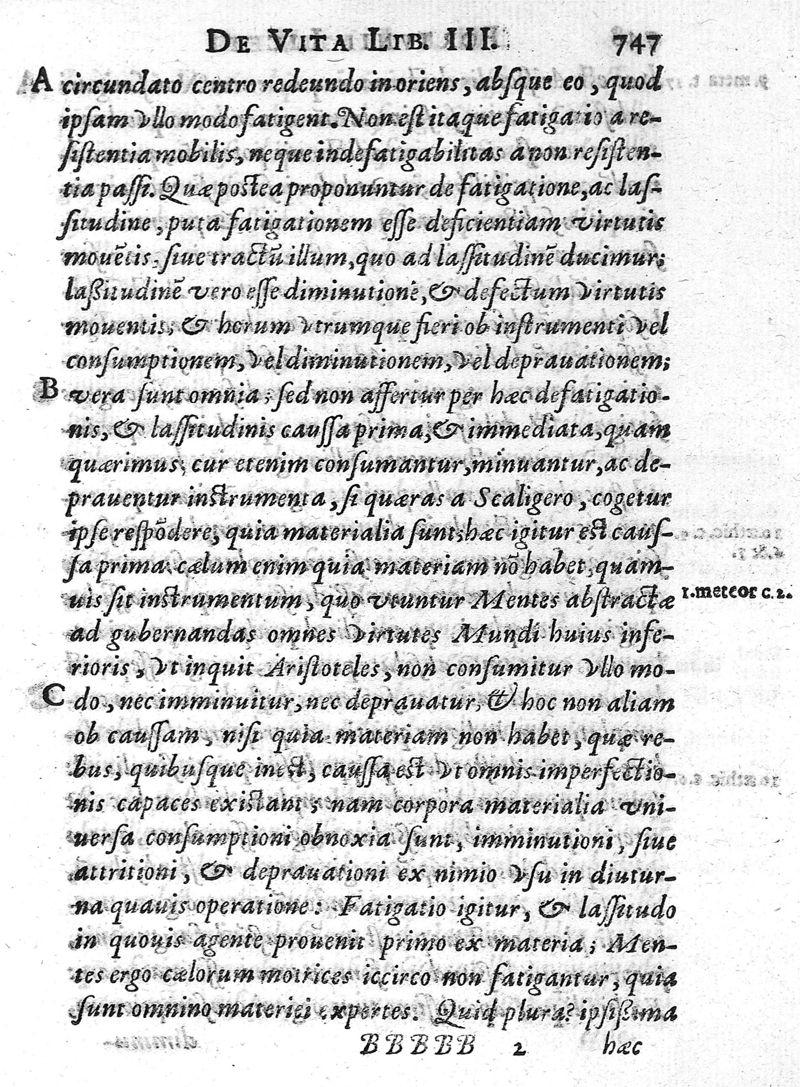 DE VITA LIB. III. 747
A circundato centro redeundo in oriens, abſque eo, quod
ipſam vllo modo fatigent. Non eſt itaque fatigatio a re-
ſiſtentia mobilis, neque indefatigabilitas a non reſiſten-
tia paſſi. Quæ poſtea proponuntur de fatigatione, ac laſ-
ſitudine, puta fatigationem eſſe deficientiam virtutis
mouẽtis, ſiue tractũ illum, quo ad laſſitudinẽ ducimur;
laßitudinẽ vero eſſe diminutionẽ, & defectum virtutis
mouentis; & horum vtrumque fieri ob inſtrumenti vel
conſumptionem, vel diminutionem, vel deprauationem;
B vera ſunt omnia; ſed non affertur per hæc defatigatio-
nis, & laſſitudinis cauſſa prima, & immediata, quam
quærimus; cur etenim conſumantur, minuantur, ac de-
prauentur inſtrumenta, ſi quæras a Scaligero, cogetur
ipſe reſpõdere, quia materialia ſunt; hæc igitur eſt cauſ-
ſa prima. cælum enim quia materiam nõ habet, quam-
uis ſit inſtrumentum, quo vtuntur Mentes abſtractæ 1. meteor c. 2.
ad gubernandas omnes virtutes Mundi huius infe-
rioris, vt inquit Ariſtoteles, non conſumitur vllo mo-
C do, nec imminuitur, nec deprauatur, & hoc non aliam
ob cauſſam, niſi quia materiam non habet, quæ re-
bus, quibuſque ineſt, cauſſa eſt vt omnis imperfectio-
nis capaces exiſtant; nam corpora materialia vni-
uerſa conſumptioni obnoxia ſunt, imminutioni, ſiue
attritioni, & deprauationi ex nimio vſu in diutur-
na quauis operatione: Fatigatio igitur, & laſſitudo
in quouis agente prouenit primo ex materia; Men-
tes ergo cælorum motrices iccirco non fatigantur, quia
ſunt omnino materiei expertes. Quid plura? ipſißima
BBBBB 2 hæc